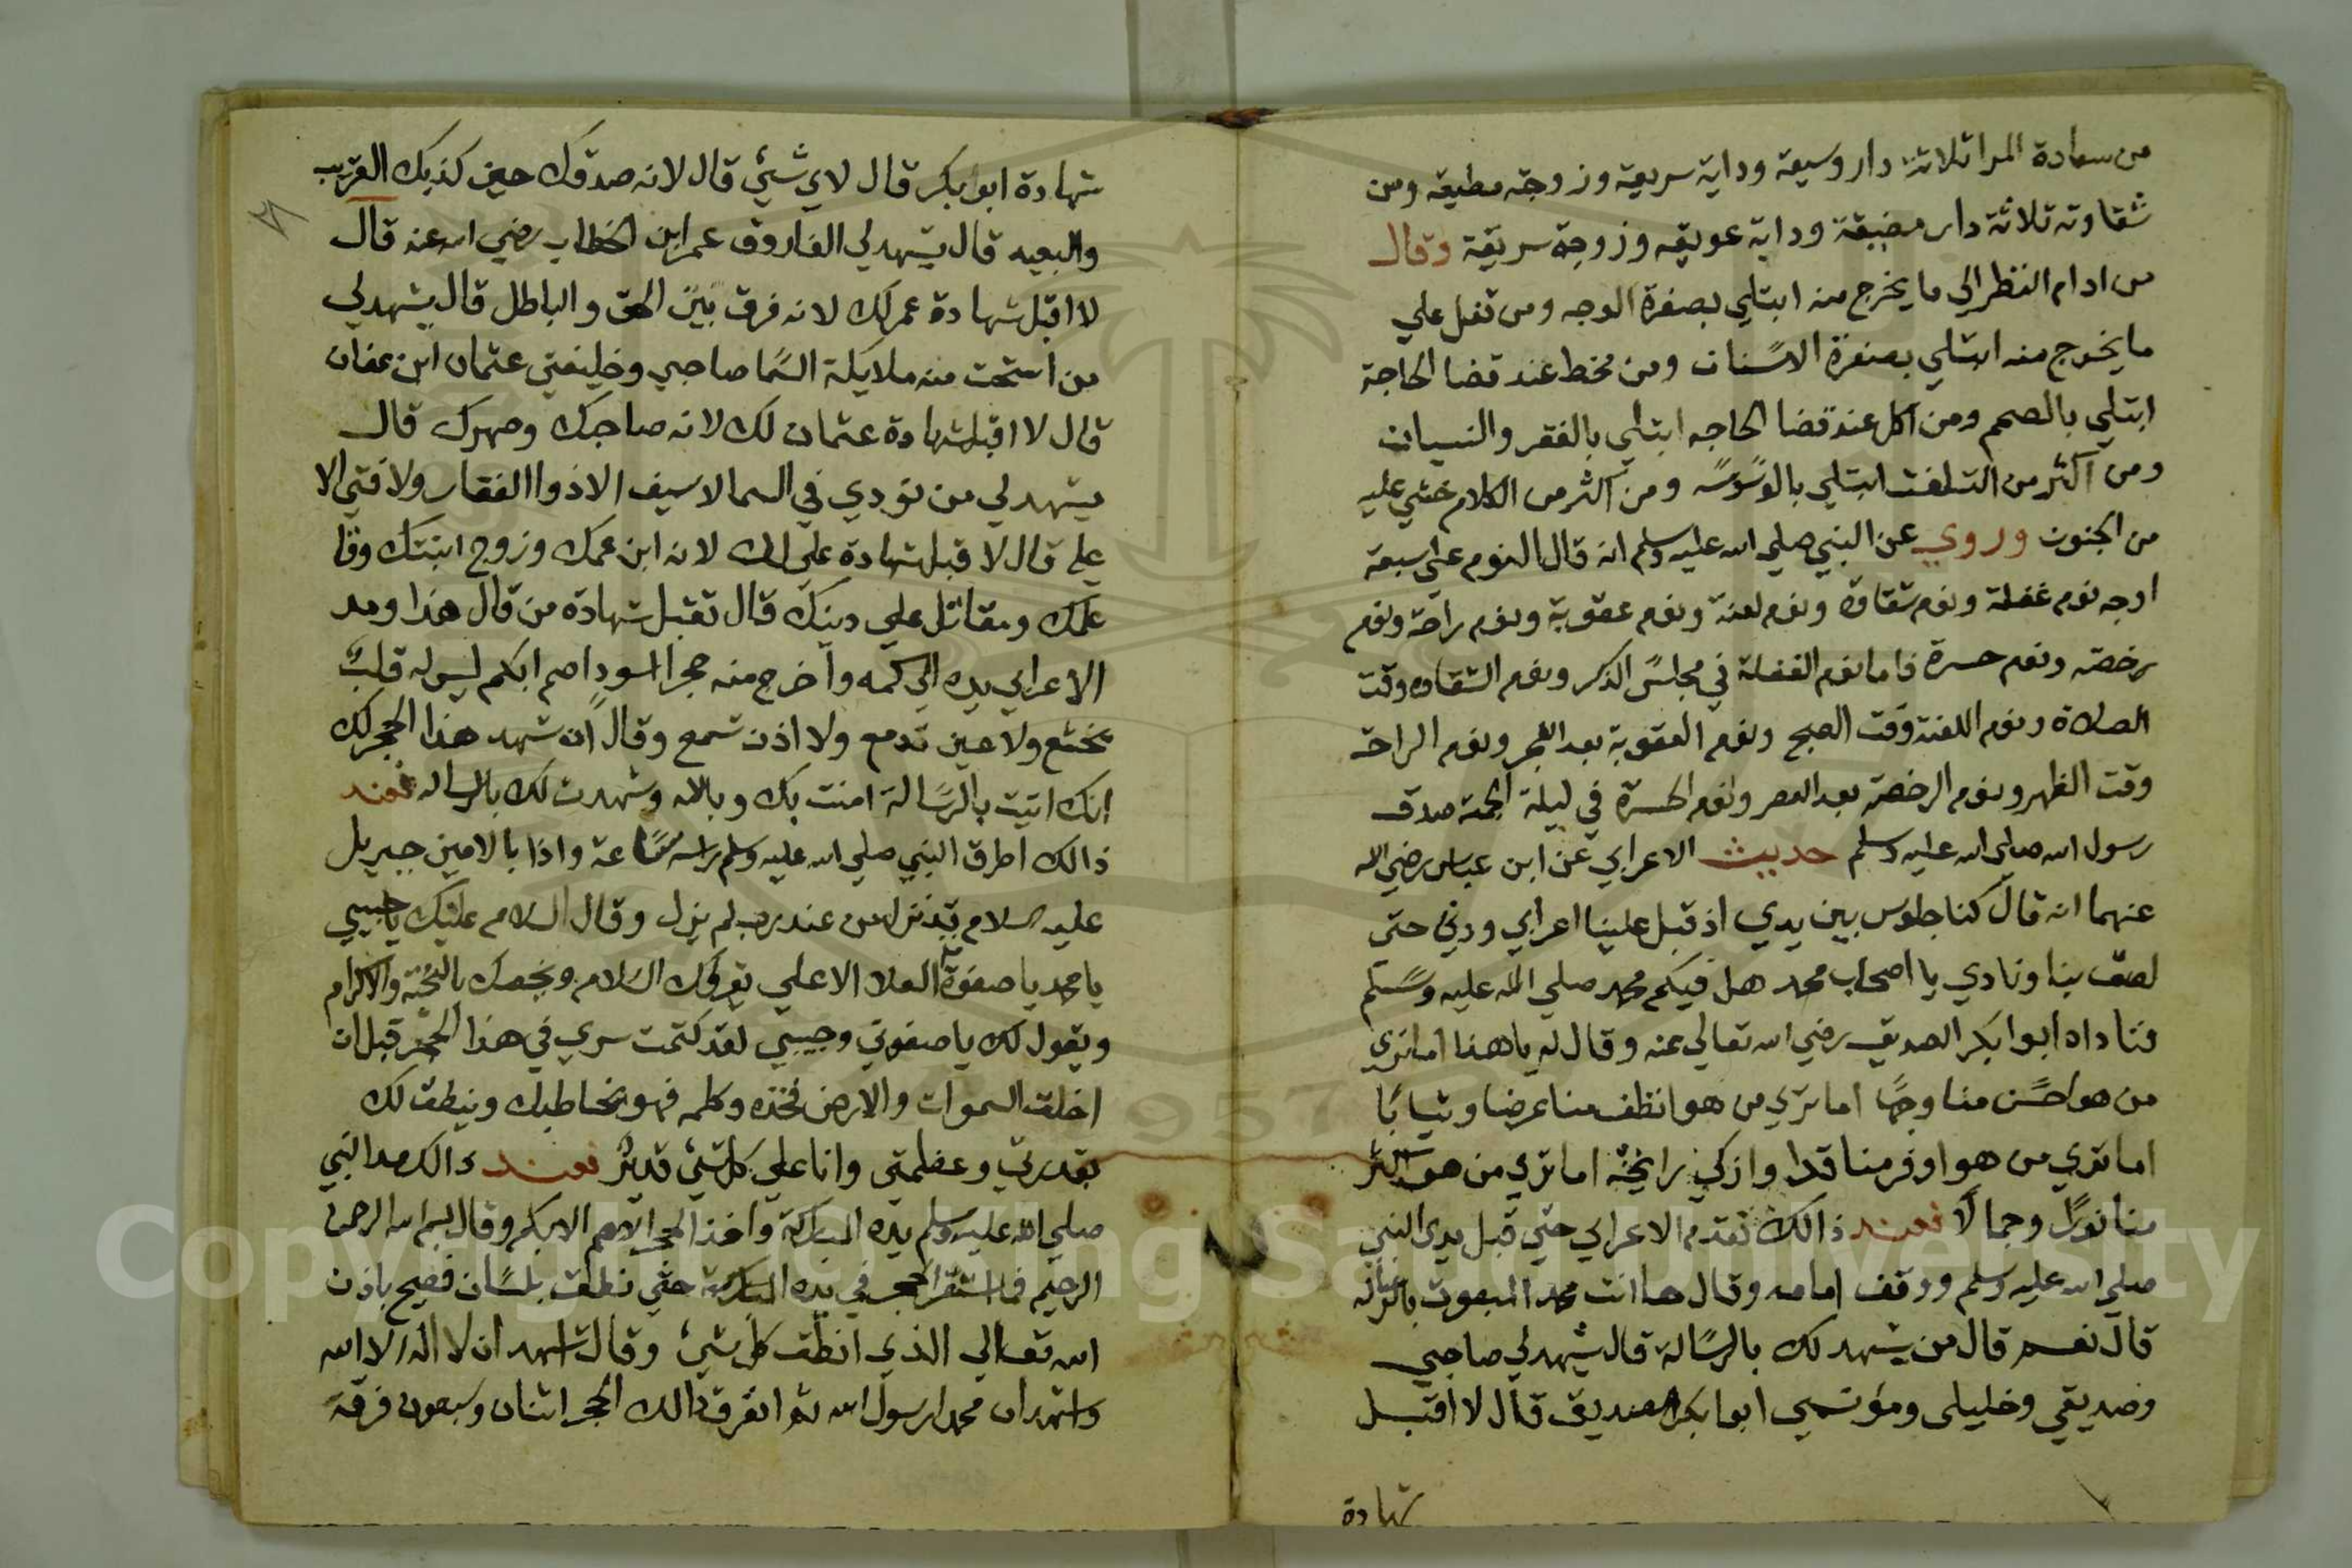 من سعادة المرا ثلاثة دار وسيعة وداية سريعة وزوجة مطيعه ومن
شقاوته ثلاثة دار مضيقة وداية عويقه وزوجة سريقة وقال
من ادام النظر الي ما يخرج منه ابتلي بصفرة الوجه ومن تفل علي
ما يخرج منه ابتلي بصفرة الاسنان ومن مخط عند قضا الحاجة
ابتلي بالصمم ومن اكل عند قضا الحاجه ابتلي بالفقر والنسيان
ومن اكثر من التلفت ابتلي بالوسوسه ومن اكثر من الكلام خشي عليه
من الجنون وروي عن النبي صلي الله عليه وسلم انه قال النوم علي سبعة
اوجه نوم غفلة ونوم شقاوة ونوم لعنة ونوم عقوبة ونوم راحة ونوم
رخصة ونوم حسرة فاما نوم الغفلة في مجلس الذكر ونوم الشقاوه وقت
الصلاة ونوم اللعنة وقت الصبح ونوم العقوبة بعد الفجر ونوم الراحة
وقت الظهر ونوم الرخصة بعد العصر ونوم الحسرة في ليلة الجمة صدق
رسول الله صلي الله عليه وسلم حديث الاعرابي عن ابن عباس رضي الله
عنهما انه قال كنا جلوس بين يدي اذ قبل علينا اعرابي ودني حتي
لصق بنا ونادي يا اصحاب محمد هل فيكم محمد صلي الله عليه وسلم
فناداه ابوا بكر الصديق رضي الله تعالي عنه وقال له يا هذا اما تري
من هو احسن منا وجها اما تري من هو انظف منا عرضا وثيابا
اما تري من هو اوفر منا قدا وازكي رايحة اما تري من هو اكثر
منا نورا وجمالا فعند ذالك تقدم الاعرابي حتي قبل يدي النبي
صلي الله عليه وسلم ووقف امامه وقال ها انت محمد المبعوت بالرساله
قال نعم قال من يشهد لك بالرسالة قال يشهد لي صاحبي
وصديقي وخليلي ومؤنسي ابوا بكر الصديق قال لا اقبل
شهادة
٣٨
شهادة ابوا بكر قال لاي شيء قال لانه صدقك حين كذبك القريب
والبعيه قال يشهد لي الفاروق عمر ابن الخطاب رضي الله عنه قال
لا اقبل شهادة عمر لك لانه فرق بين الحق والباطل قال يشهد لي
من استحت منه ملايكة السما صاحبي وخليفتي عثمان ابن عفان
قال لا اقبل شهادة عثمان لك لانه صاحبك وصهرك قال
يشهد لي من نودي في السما لا سيف الا ذوا الفقار ولا فتي الا
علي قال لا قبل شهادة علي لك لانه ابن عمك وزوج ابنتك وقا
علمك ومقاتل علي دينك قال تقبل شهادة من قال هذا ومد
الاعرابي يده الي كمه واخرج منه حجرا اسود اصم ابكم ليس له قلب
يخشع ولا عين تدمع ولا اذن تسمع وقال ان شهد هذا الحجر لك
انك اتيت بالرسالة امنت بك وبالله وشهدت لك بالرساله فعند
ذالك اطرق النبي صلي الله عليه وسلم راسه ساعة واذا بالامين جبريل
عليه السلام قد نزل من عند رب لم يزل وقال السلام عليك يا حبيبي
يا محمد يا صفوة العلا الاعلي يقروك السلام ويخصك بالتحية والاكرام
ويقول لك يا صفوتي وحبيبي لقد كتمت سري في هذا الحجر قبل ان
اخلق السموات والارض فخذه وكلمه فهو يخاطبك وينطق لك
بقدرتي وعظمتي وانا علي كل شيء قدير فعند ذالك مد النبي
صلي الله عليه وسلم يده المباركة واخذ الحجر الاصم الابكم وقال بسم الله الرحمن
الرحيم فما استقر الحجر في يده المباركة حتي نطق بلسان فصيح باذن
الله تعالي الذي انطق كل شيء وقال اشهد ان لا اله الا الله
واشهد ان محمدا رسول الله ثم انفرق ذالك الحجر اثنان وسبعون فرقة
Copyright © King Saud University
1957